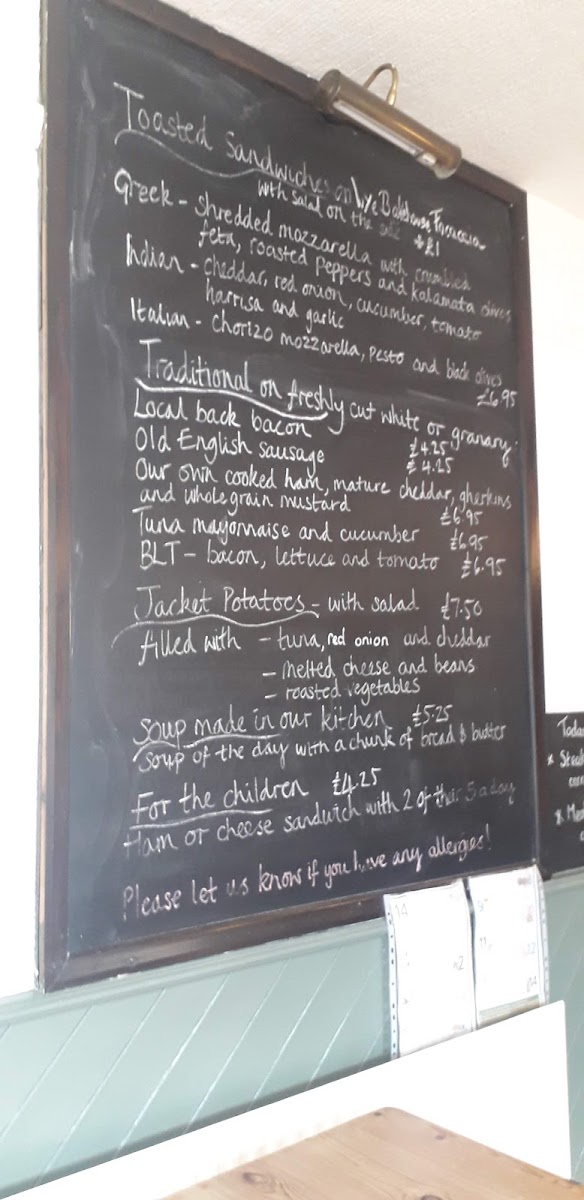 Toasted Sandwiches on Wye Bakehouse Foccacia
with salad on the side +£1
Greek - shredded mozzarella with crumbled
feta, roasted peppers and kalamata olives
Indian - cheddar, red onion, cucumber, tomato
harrisa and garlic
Italian - chorizo mozzarella, pesto and black olives
£6.95
Traditional on freshly cut white or granary.
Local back bacon £4.25
Old English sausage £4.25
Our own cooked ham, mature cheddar, gherkins
and wholegrain mustard £6.95
Tuna mayonnaise and cucumber £6.95
BLT - bacon, lettuce and tomato £6.95
Jacket Potatoes - with salad £7.50
filled with - tuna, red onion and cheddar
- melted cheese and beans
- roasted vegetables
Soup made in our kitchen £5.25
Soup of the day with a chunk of bread & butter
For the children £4.25
Ham or cheese sandwich with 2 of their 5 a day
Please let us know if you have any allergies!
14